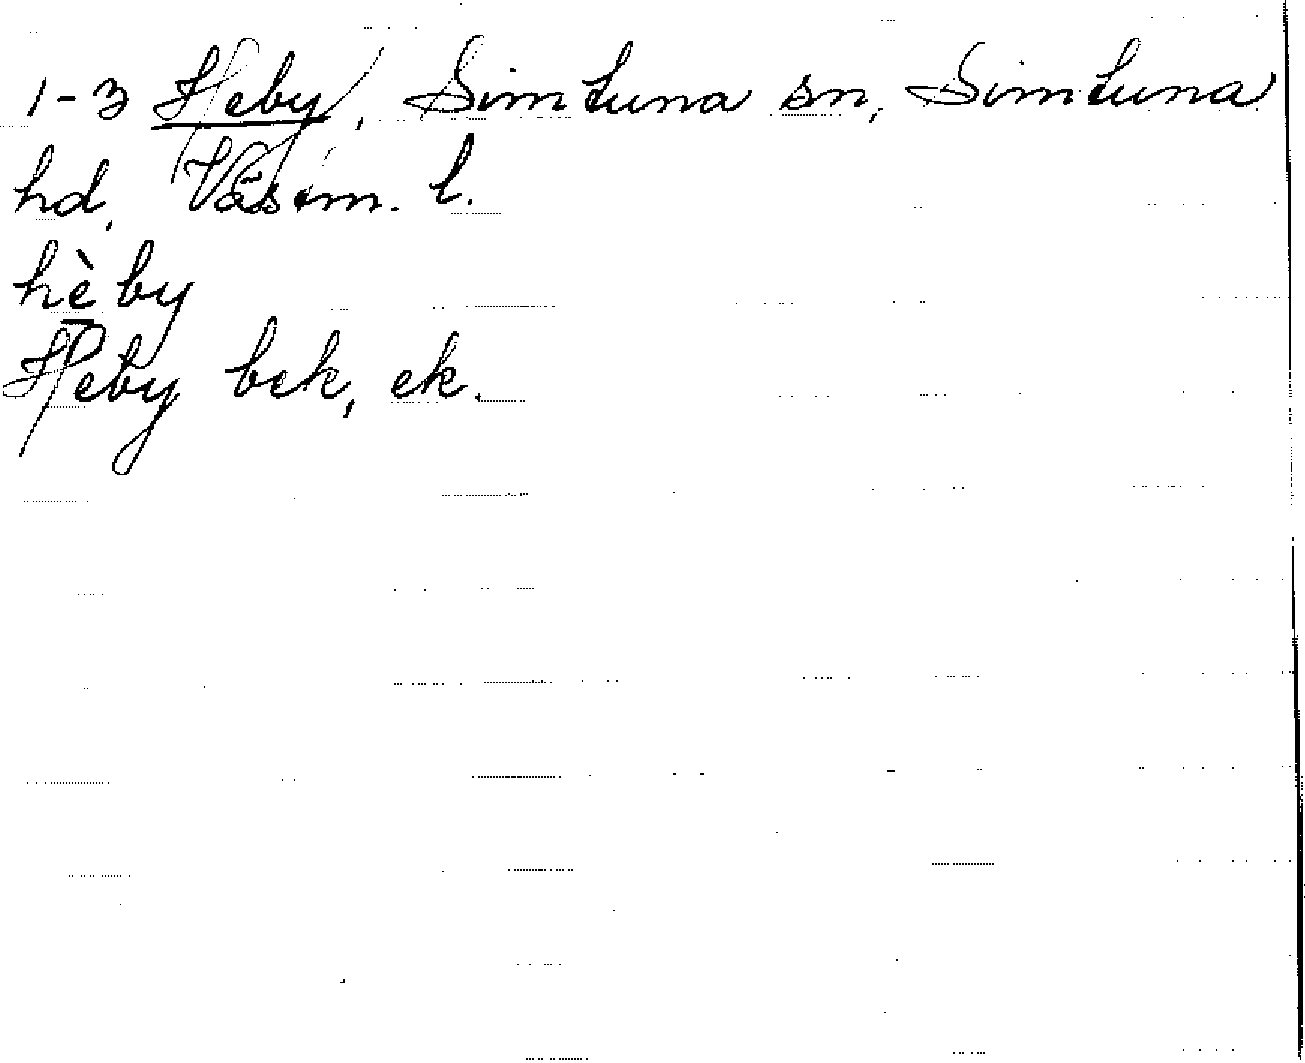 1-3 Heby, Simtuna sn, Simtuna
hd, Västm. l.
hè̱by
Heby bek, ek.